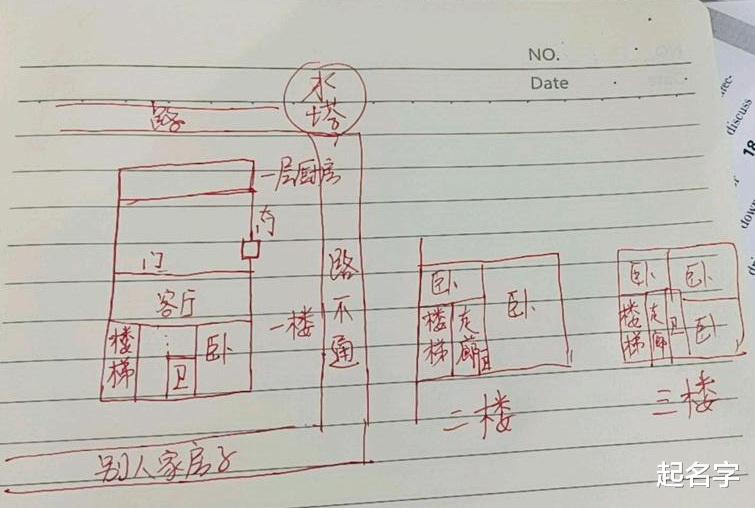 NO.
Date
水塔
路
一层厨房
门
门
客厅
一楼
楼梯
卫
卧
路不通
别人家房子
卧
卧
楼梯
走廊
二楼
卧
卧
楼梯
走廊
卫
卧
三楼
discuss
18
起名字